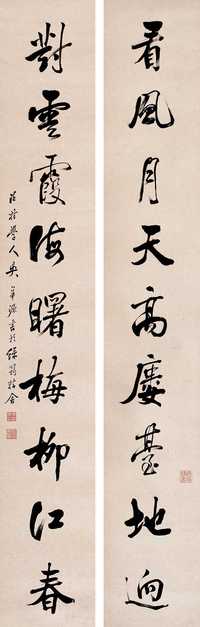 看風月天高廔臺地迥
對雲霞海曙梅柳江春
學人吳華源書於